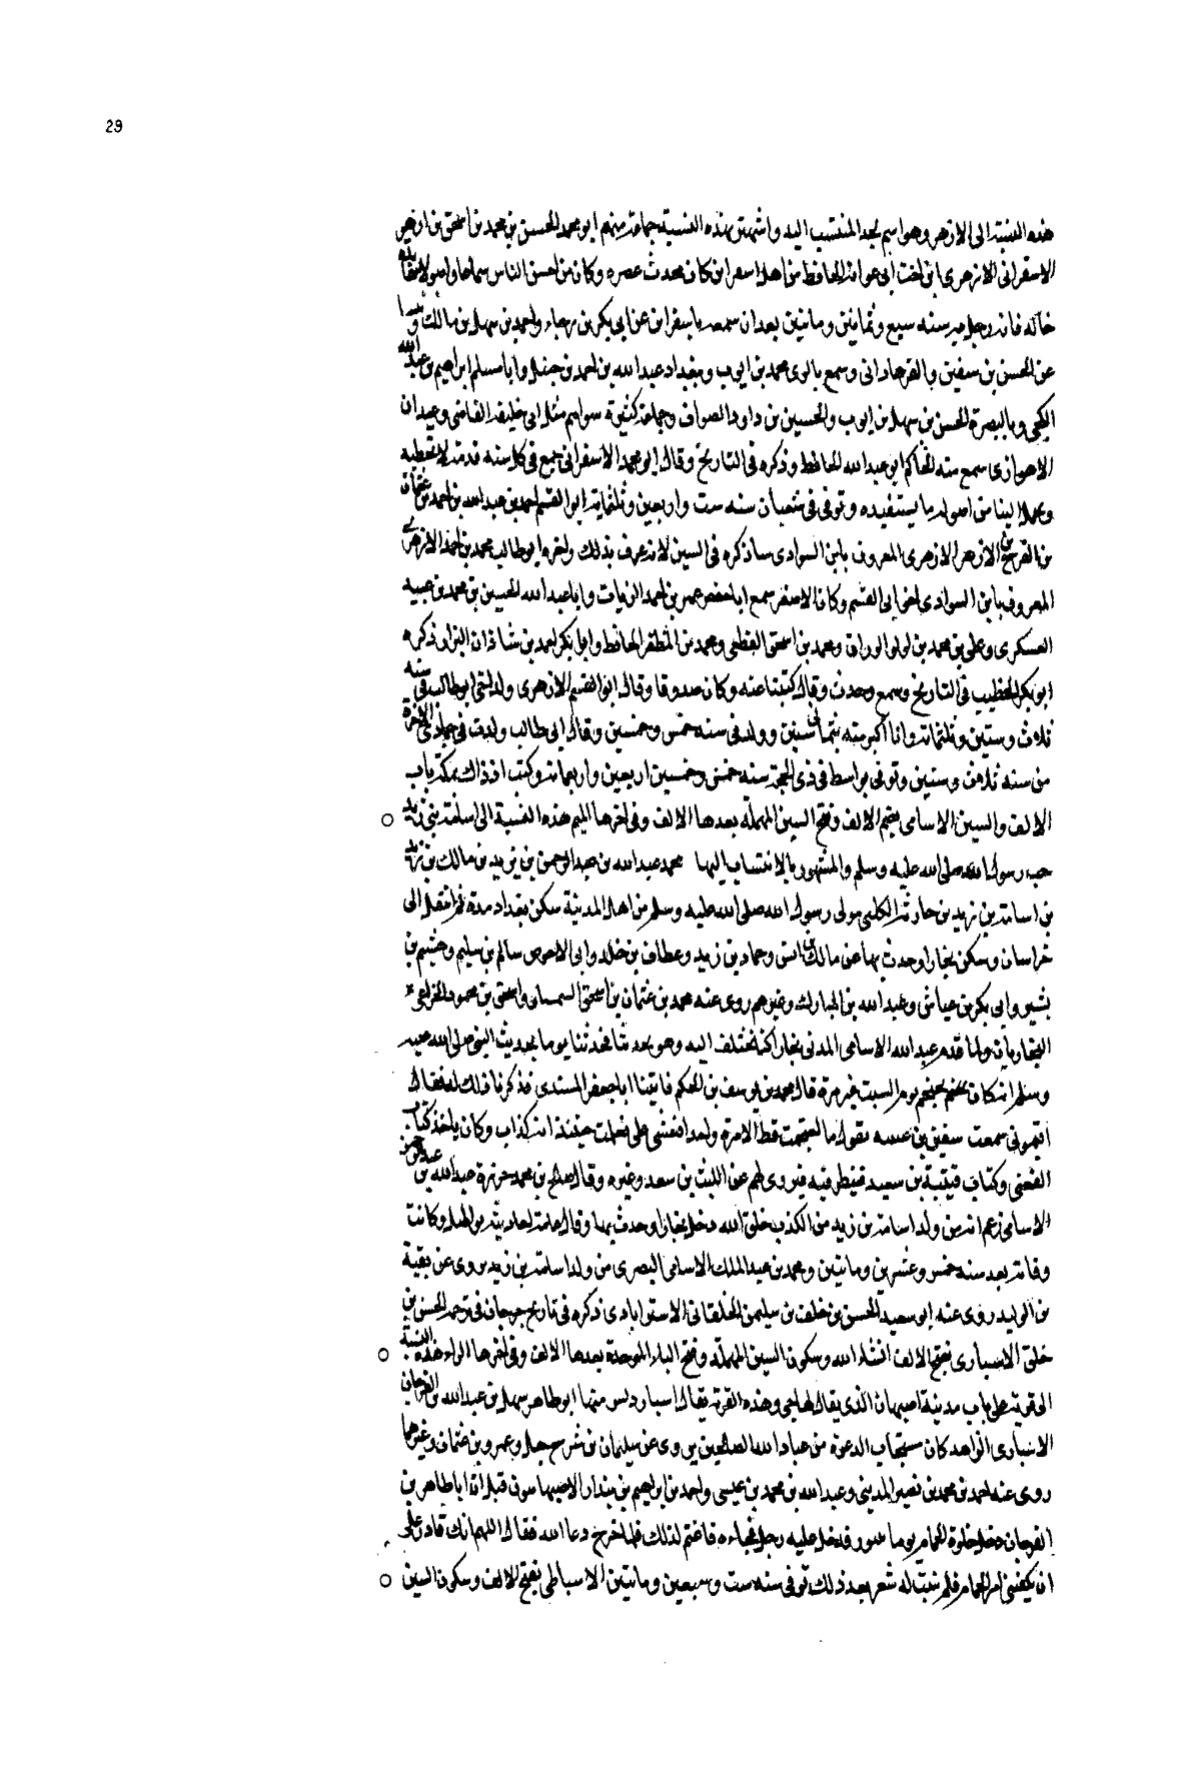 29
هذه النسبة الى الازهر وهو اسم لجد المنتسب اليه واشتهر بهذه النسبة جماعة منهم ابو محمد الحسن بن محمد بن اسحق بن ازهر
الاسفرانى الازهرى ابن اخت ابى عوانة الحافظ من اهل اسفراين كان محدث عصره وكان من احسن الناس سماعا واصولا
خاله فانه رحل به سنه سبع وثمانين وماتين بعد ان سمعه باسفراين عن ابى بكر بن رجاء واحمد بن سهل بن مالك
عن الحسن بن سفين وسمع بالرى محمد بن ايوب وببغداد عبد الله بن احمد بن حنبل وابا مسلم ابراهيم بن عبد الله
الكجى وبالبصرة الحسن بن سهل بن ايوب والحسين بن داود الصواف وجماعة كثيرة سواهم مثل ابى خليفه القاضى وعبدان
الاهوازى سمع منه الحاكم ابو عبد الله الحافظ وذكره فى التاريخ وقال ابو محمد الاسفرانى
الينا من اصوله ما يستفيده وتوفى فى شعبان سنه ست واربعين وثلثماية ابو القسم احمد بن عبد الله بن احمد بن عثمان
بن الفرج بن الازهر الازهرى المعروف بابن السوادى ساذكره فى السين لانه عرف بذلك واخوه ابو طالب محمد بن احمد الازهرى
المعروف بابن السوادى اخو ابى القسم وكان الاصغر سمع ابا حفص عمر بن احمد الزيات وابا عبد الله الحسين بن محمد بن عبيد
العسكرى وعلى بن محمد بن لولو الوراق ومحمد بن اسحق القطيعى ومحمد بن المظفر الحافظ وابا بكر احمد بن شاذان البزاز ذكره
ابو بكر الخطيب فى التاريخ وسمع وحدث وقال كتبنا عنه وكان صدوقا وقال ابو القسم الازهرى ولد اخى ابو طالب فى سنه
ثلاث وستين وثلثماية وانا اكبر منه بثمانى سنين وولد فى سنه خمس وخمسين وقال لى ابى طالب ولدت فى جمادى الاخرة
من سنه ثلاث وستين وتوفى بواسط فى ذى الحجة سنه خمس واربعين واربعماية وكنت اذ ذاك بمكة باب
الالف والسين الاسامى بضم الالف وفتح السين المهملة بعدها الالف وفى اخرها الميم هذه النسبة الى اسامة بن زيد
حب رسول الله صلى الله عليه وسلم والمشهور بالانتساب اليها محمد عبد الله بن عبد الرحمن بن يزيد بن مالك بن زيد
بن اسامة بن زيد بن حارثة الكلبى مولى رسول الله صلى الله عليه وسلم من اهل المدينة سكن بغداد مدة ثم انتقل الى
خراسان وسكن بخارا وحدث بها عن مالك بن انس وحماد بن زيد وعطاف بن خالد وابى الاحوص سالم بن سليم وهشيم بن
بشير وابى بكر بن عياش وعبد الله بن المبارك وغيرهم روى عنه محمد بن عثمان بن اسحق السمسار واسحق بن محمود الخزاعى
البخاريان ولما قدم عبد الله الاسامى المدنى بخارا كنا نختلف اليه وهو يحدثنا فحدثنا يوما بحديث النبى صلى الله عليه
وسلم انه كان يحتجم يوم السبت غير مرة قال محمد بن يوسف بن الحكم فاتينا ابا جعفر المسندى فذكرنا ذلك له فقال
اقيمونى سمعت سفين بن عيينه يقول ما احتجمت قط الا مرة واحدة فغشى على فعلمت حينئذ انه كذاب وكان ياخذ كتاب
القعنبى وكتاب قتيبة بن سعيد فينظر فيه فيروى لهم عن الليث بن سعد وغيره وقال صالح بن محمد جزرة عبد الله بن عبد الرحمن
الاسامى زعم انه من ولد اسامة بن زيد من اكذب خلق الله دخل بخارا وحدث بها وقال عامة احاديثه بواطيل وكانت
وفاته بعد سنه خمس وعشرين وماتين ومحمد بن عبد الملك الاسامى البصرى من ولد اسامة بن زيد يروى عن بقية
بن الوليد روى عنه ابو سعيد الحسن بن خلف بن سليمن الخلقانى الاستراباذى ذكره فى تاريخ جرجان فى ترجمة الحسن بن
خلف الاسبارى بفتح الالف انشاء الله وسكون السين المهملة وفتح الباء الموحدة بعدها الالف وفى اخرها الراء هذه النسبة
الى قرية على باب مدينة اصبهان الذى يقال لها جى وهذه القرية يقال اسبار ديس منها ابو طاهر سهل بن عبد الله بن الفرخان
الاسبارى الزاهد كان مستجاب الدعوة من عباد الله الصالحين يروى عن سليمان بن شرحبيل وعمرو بن عثمان وغيرهما
روى عنه احمد بن محمد بن نصير المدينى وعبد الله بن محمد بن عيسى واحمد بن ابراهيم بن بندار الاصبهانيون قيل ان ابا طاهر بن
الفرخان دخل خلوة الحمام يوما فدخل عليه رجل فجاءه فاغتم لذلك فلما خرج دعا الله فقال اللهم انك قادر على
ان تكفينى امر الحمام فلم تنبت له شعر بعد ذلك توفى سنه ست وسبعين وماتين الاسباطى بفتح الالف وسكون السين